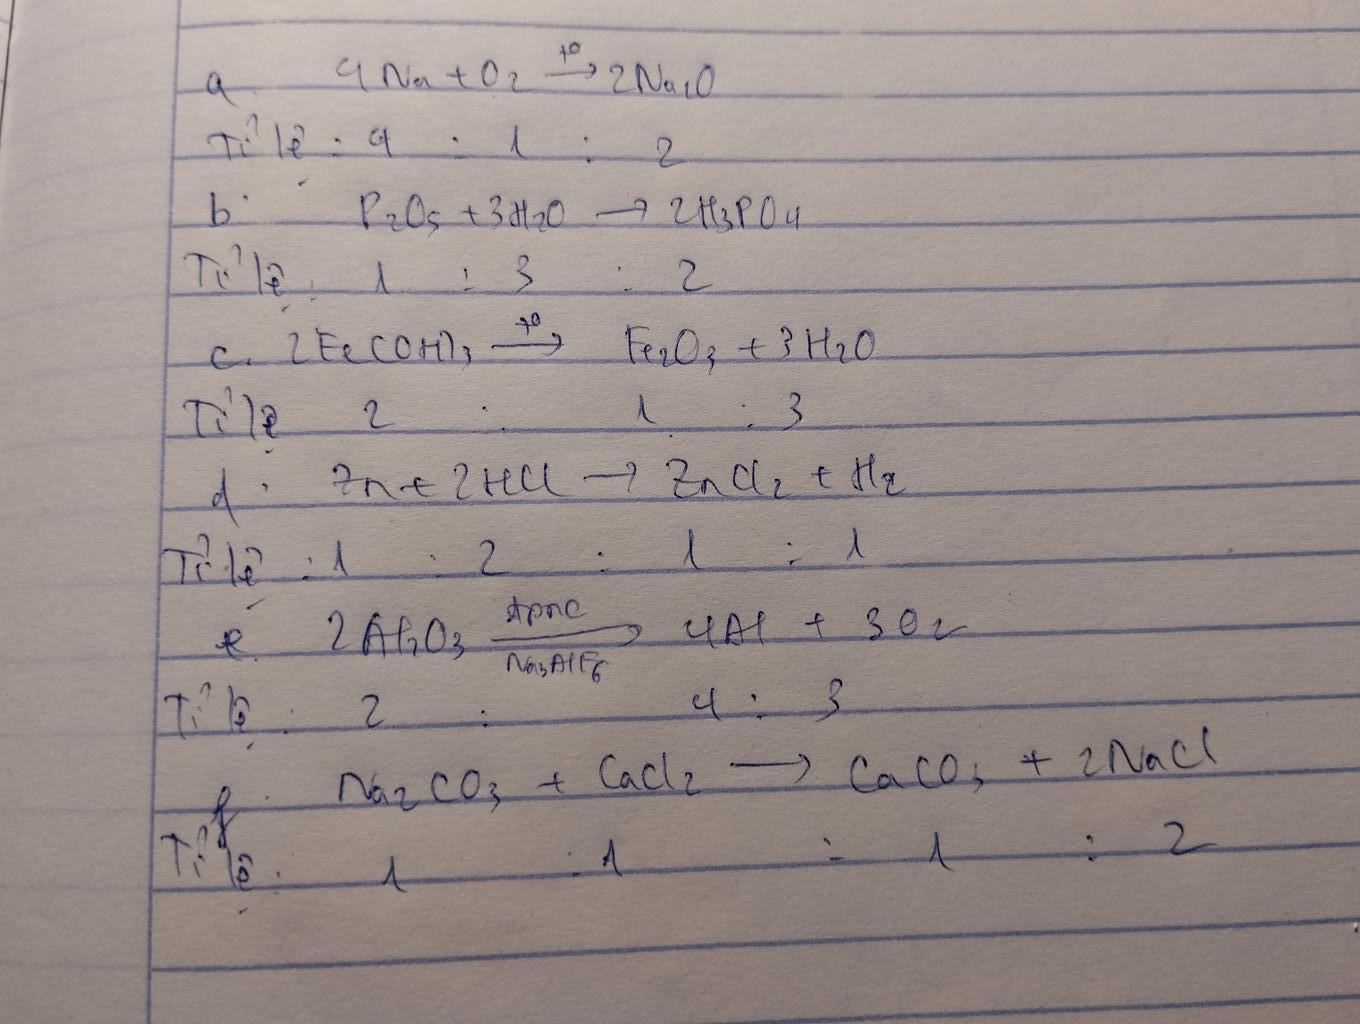 a. 4Na + O2 t° → 2Na2O
Tỉ lệ : 4 : 1 : 2
b. P2O5 + 3H2O → 2H3PO4
Tỉ lệ : 1 : 3 : 2
c. 2Fe(OH)3 t° → Fe2O3 + 3H2O
Tỉ lệ 2 : 1 : 3
d. Zn + 2HCl → ZnCl2 + H2
Tỉ lệ : 1 : 2 : 1 : 1
e. 2Al2O3 đpnc → Na3AlF6 4Al + 3O2
Tỉ lệ : 2 : 4 : 3
f. Na2CO3 + CaCl2 → CaCO3 + 2NaCl
Tỉ lệ : 1 : 1 : 1 : 2